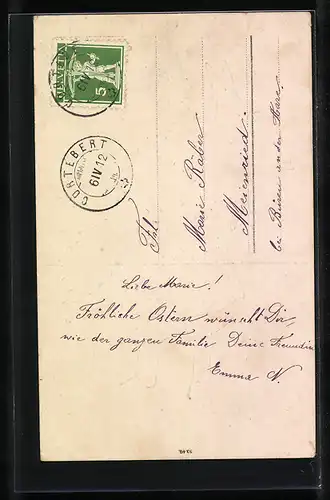 HELVETIA
5
CORTEBERT
6 IV 12
Frl.
Marie Räber
Meienried.
bei Büren an der Aare.
Liebe Marie!
Fröhliche Ostern wünscht Dir,
wie der ganzen Familie Deine Freundin
Emma N.